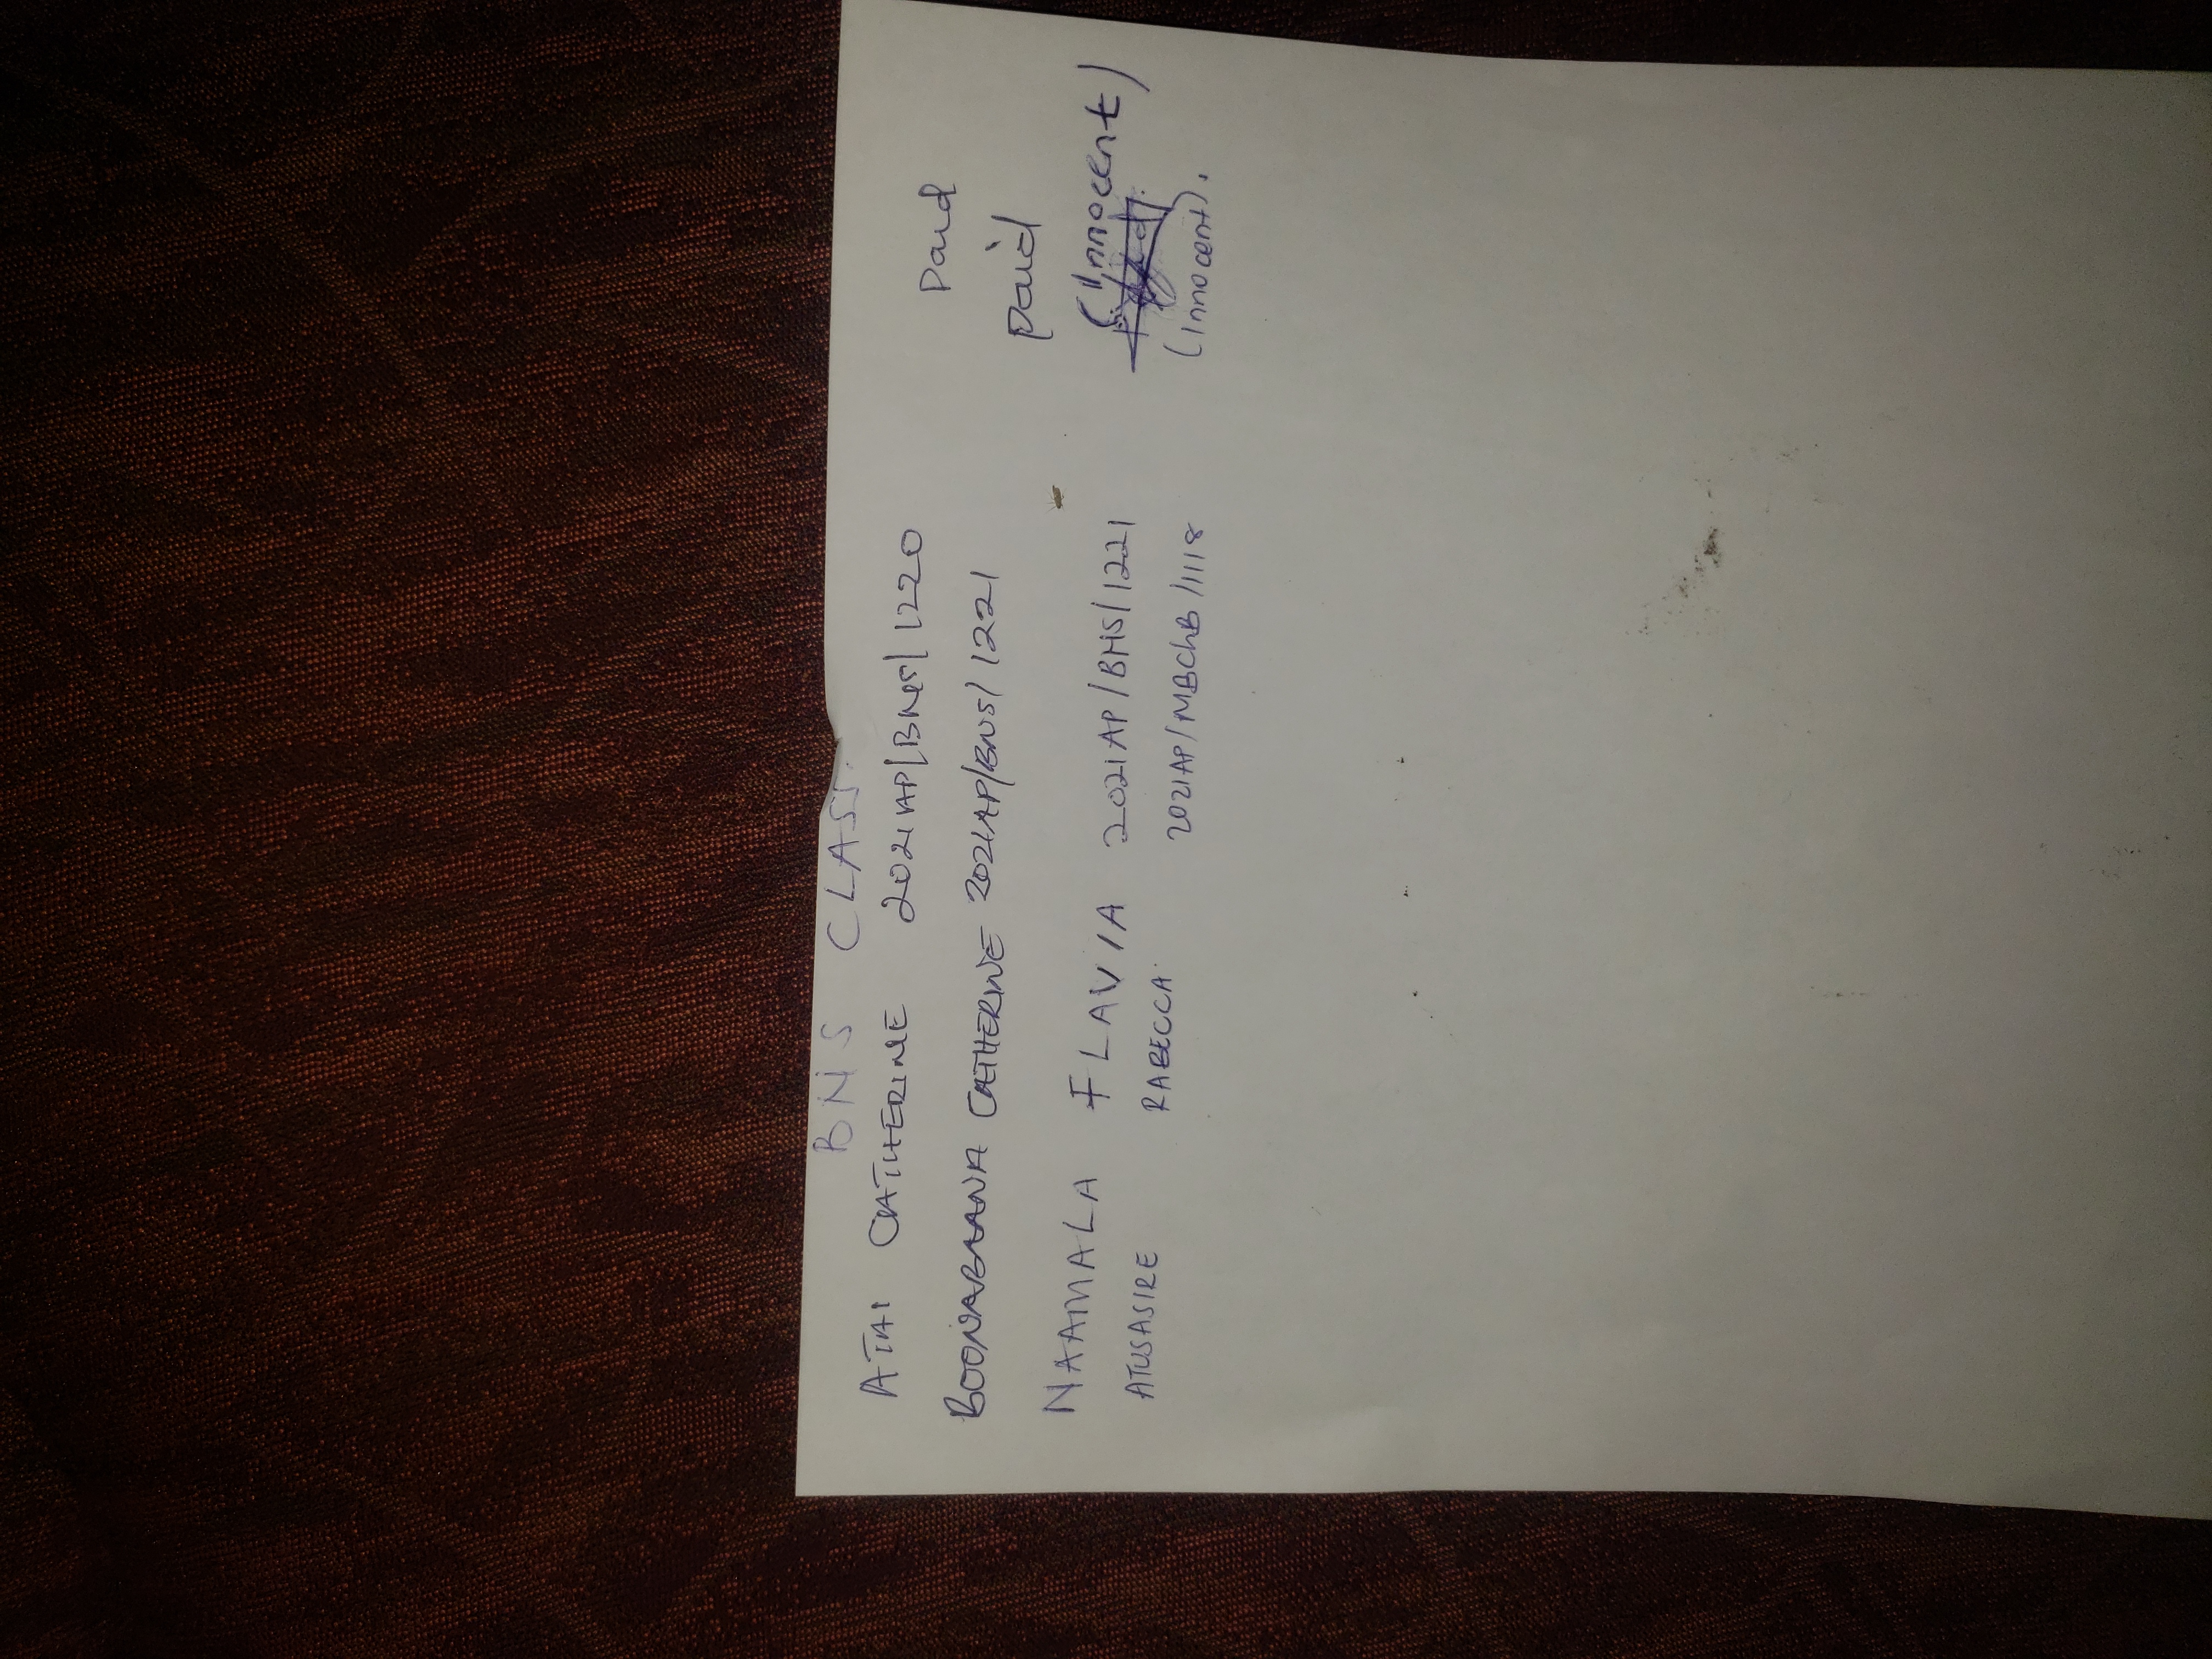 BNS CLASS.
ATAI CATHERINE 2021AP/BNS/1220 Paid
BOONABAANA CATHERINE 2021AP/BNS/1221 paid
NAAMALA FLAVIA 2021AP/BNS/1221 (Innocent)
ATUSASIRE RABECCA 2021AP/MBChB/1118 (Innocent).